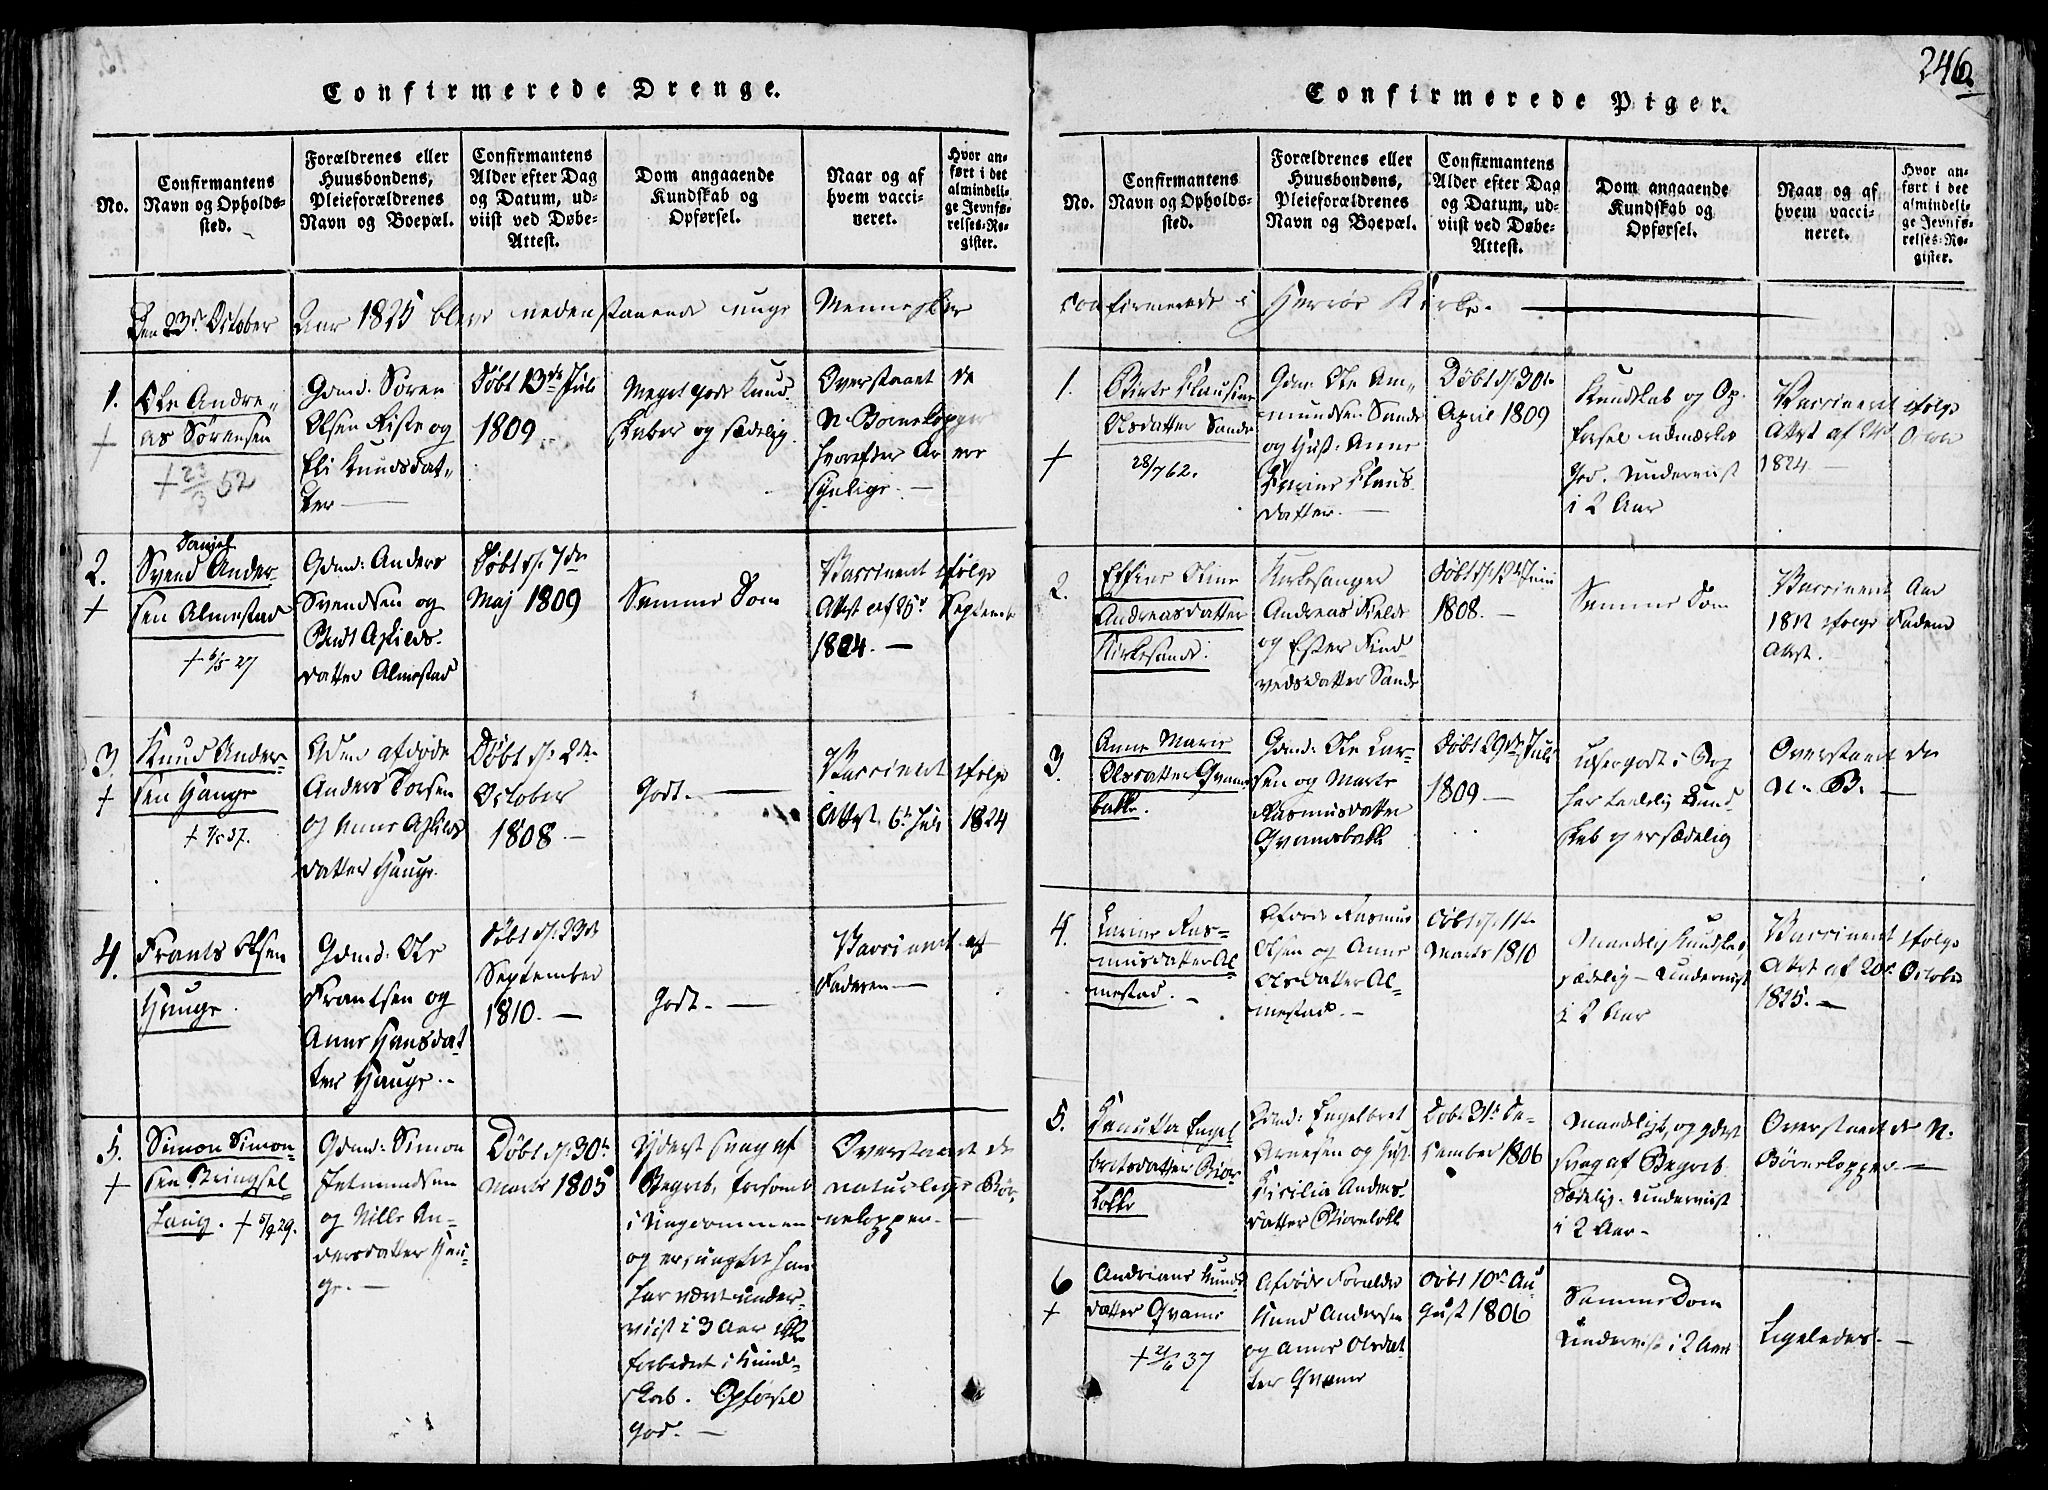 246.
Confirmerede Drenge.
No.
Confirmantens
Navn og Opholds-
sted.
Forældrenes eller
Huusbondens,
Pleieforældrenes
Navn og Boepæl.
Confirmantens
Alder efter Dag
og Datum, ud-
viist ved Døbe-
Attest.
Dom angaaende
Kundskab og
Opførsel.
Naar og af
hvem vacci-
neret.
Hvor an-
ført i det
almindeli-
ge Jevnfø-
relses-Re-
gister.
Den 23de October Aar 1825 bleve nedenstaaende unge Mennesker
1.
+
Ole Andre-
as Sørensen
+ 23/3 52
Gdmd. Søren
Olsen Riste og
Eli Knudsdat-
ter
Døbt 13de Juli
1809
Meget gode Kund-
skaber og sædelig.
Overstaaet de
N Børnekopper
hvorefter Ar ere
synlige.
2.
+
Daniel
Svend Ander-
sen Almestad
+ 6/5 27
Gdmd: Anders
Svendsen og
Berit Askilds-
datter Almestad
Døbt d. 7de
Maj 1809
Samme Dom
Vaccineret ifølge
Attst af 25d Septembr
1824.
3.
+
Knud Ander-
sen Hauge
+ 7/5 37.
Gdmd afdøde
Anders Torsen
og Anne Askilds
datter Hauge.
Døbt d. 2den
October
1808.
Godt.
Vaccineret ifølge
Attst 6te Juli 1824
4.
Frants Olsen
Hauge.
Gdmd: Ole
Frantsen og
Anne Hansdat-
ter Hauge.
Døbt d. 23de
September
1810.
Godt.
Vaccineret af
Faderen
5.
+
Simon Simon-
sen Bringsel
Haug. + 5/9 29.
Gdmd: Simon
Jetmundsen
og Nille An-
dersdatter Hau-
ge.
Døbt d. 30te
Marts 1805
Yderst svag af
Begreb, forsømt
i Ungdommen
og er uagtet han
har været under-
viist i 3 Aar ikke
forbedret i Kund-
skab. Opførsel
god.
Overstaaet de
naturlige Bør-
nekopper.
Confirmerede Piger.
No.
Confirmantens
Navn og Opholds-
sted.
Forældrenes eller
Huusbondens,
Pleieforældrenes
Navn og Boepæl.
Confirmantens
Alder efter Dag
og Datum, ud-
viist ved Døbe-
Attest.
Dom angaaende
Kundskab og
Opførsel.
Naar og af
hvem vacci-
neret.
Hvor an-
ført i det
almindeli-
ge Jevnfø-
relses-Re-
gister.
confirmerede i Herrøe Kirke.
1.
+
Birte Klausine
Olsdatter Sande
28/7 62.
Gdmd: Ole Am-
mundsen Sande
og Hust: Anne
Karine Klaus-
datter.
Døbt d. 30te
April 1809
Kundskab og Op-
førsel udmærket
god. Underviist
i 2 Aar
Vaccineret ifølge
Attst af
1824.
2.
Effine Oline
Andreasdatter
Kirkesande.
Kirkesanger
Andreas Fielde
og Ester Find-
vedsdatter Sande
Døbt d. 12te Juni
1808.
Samme Dom
Vaccineret Aar
1812 ifølge Faderens
Attst.
3.
Anne Marie
Olsdatter Qvams-
bakke.
Gdmd: Ole Lar-
sen og Marte
Rasmusdatter
Qvamsbakk
Døbt 29de Juli
1809
har taalelig Kund-
skab og er sædelig
Overstaaet de
N. B.
4.
Karine Ras-
musdatter Al-
mestad.
Afdøde Rasmus
Olsen og Anne
Olsdatter Al-
mestad.
Døbt d. 11te
Marts 1810
Maadelig Kundskab,
sædelig — Underviist
i 2 Aar
Vaccineret ifølge
Attst af 20d October
1825.
5.
Knutta Engel-
bretsdatter Biør-
lokke
Gdmd: Engelbret
Arnesen og Hust
Cicilia Anders-
datter Biørlokk
Døbt 31te De-
cember 1806
Maadeligt, og yderst
svag af Begreb.
Sædelig. Underviist
i 2 Aar.
Overstaaet de N.
Børnekopper
6
+
Andriane Knuds-
datter Qvame
+ 21/6 37
Afdøde Forældre
Knud Andersen
og Anne Olsdat-
ter Qvame
Døbt 10de Au-
gust 1806
Samme Dom
Underviist i 2 Aar
Ligeledes.